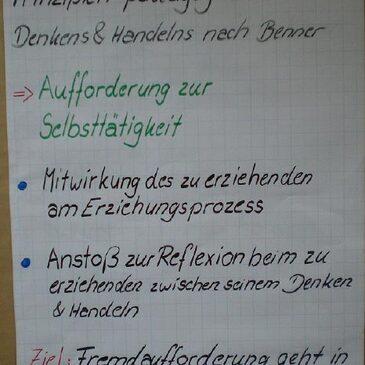 Prinzipien pädag
Denkens & Handelns nach Benner
⇒ Aufforderung zur
Selbsttätigkeit
• Mitwirkung des zu erziehenden
am Erziehungsprozess
• Anstoß zur Reflexion beim zu
erziehenden zwischen seinem Denken
& Handeln
Ziel: Fremdaufforderung geht in